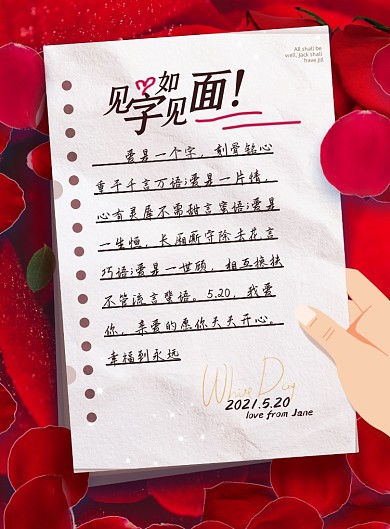 All shall be
well, Jack shall
have jill
见字如
字见面！
爱是一个字，刻骨铭心
重于千言万语；爱是一片情，
心有灵犀不需甜言蜜语；爱是
一生恒，长厢厮守除去花言
巧语；爱是一世顾，相互搀扶
不管流言蜚语。5.20，我爱
你，亲爱的愿你天天开心。
幸福到永远
White Day
2021.5.20
love from Jane